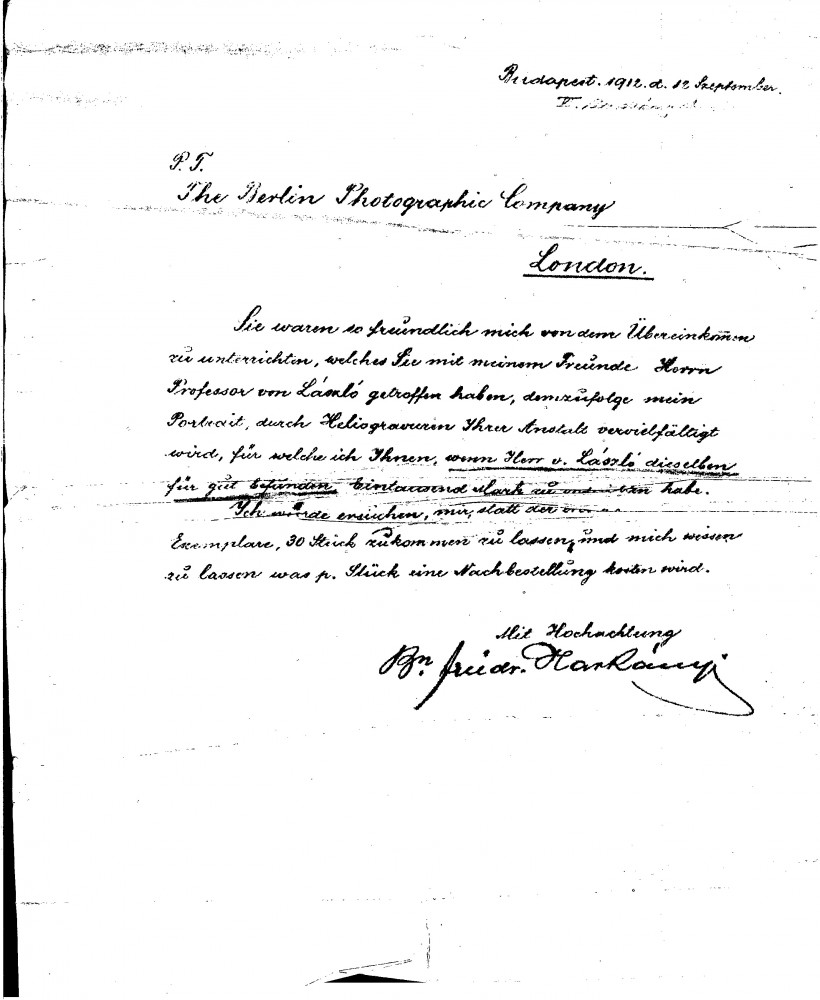 Budapest. 1912. d. 12 Szeptember.
P. T.
The Berlin Photographic Company
London.
Sie waren so freundlich mich von dem Übereinkom̄en
zu unterrichten, welches Sie mit meinem Freunde Herrn
Professor von László getroffen haben, demzufolge mein
Portrait, durch Heliogravuren Ihrer Anstalt vervielfältigt
wird, für welche ich Ihnen, wenn Herr v. László dieselben
für gut befunden, Eintausend Mark zu haben habe.
Ich würde ersuchen, mir, statt der
Exemplare, 30 Stück zukommen zu lassen, und mich wissen
zu lassen was p. Stück eine Nachbestellung kosten wird.
Mit Hochachtung
Bn. Friedr. Harkányi